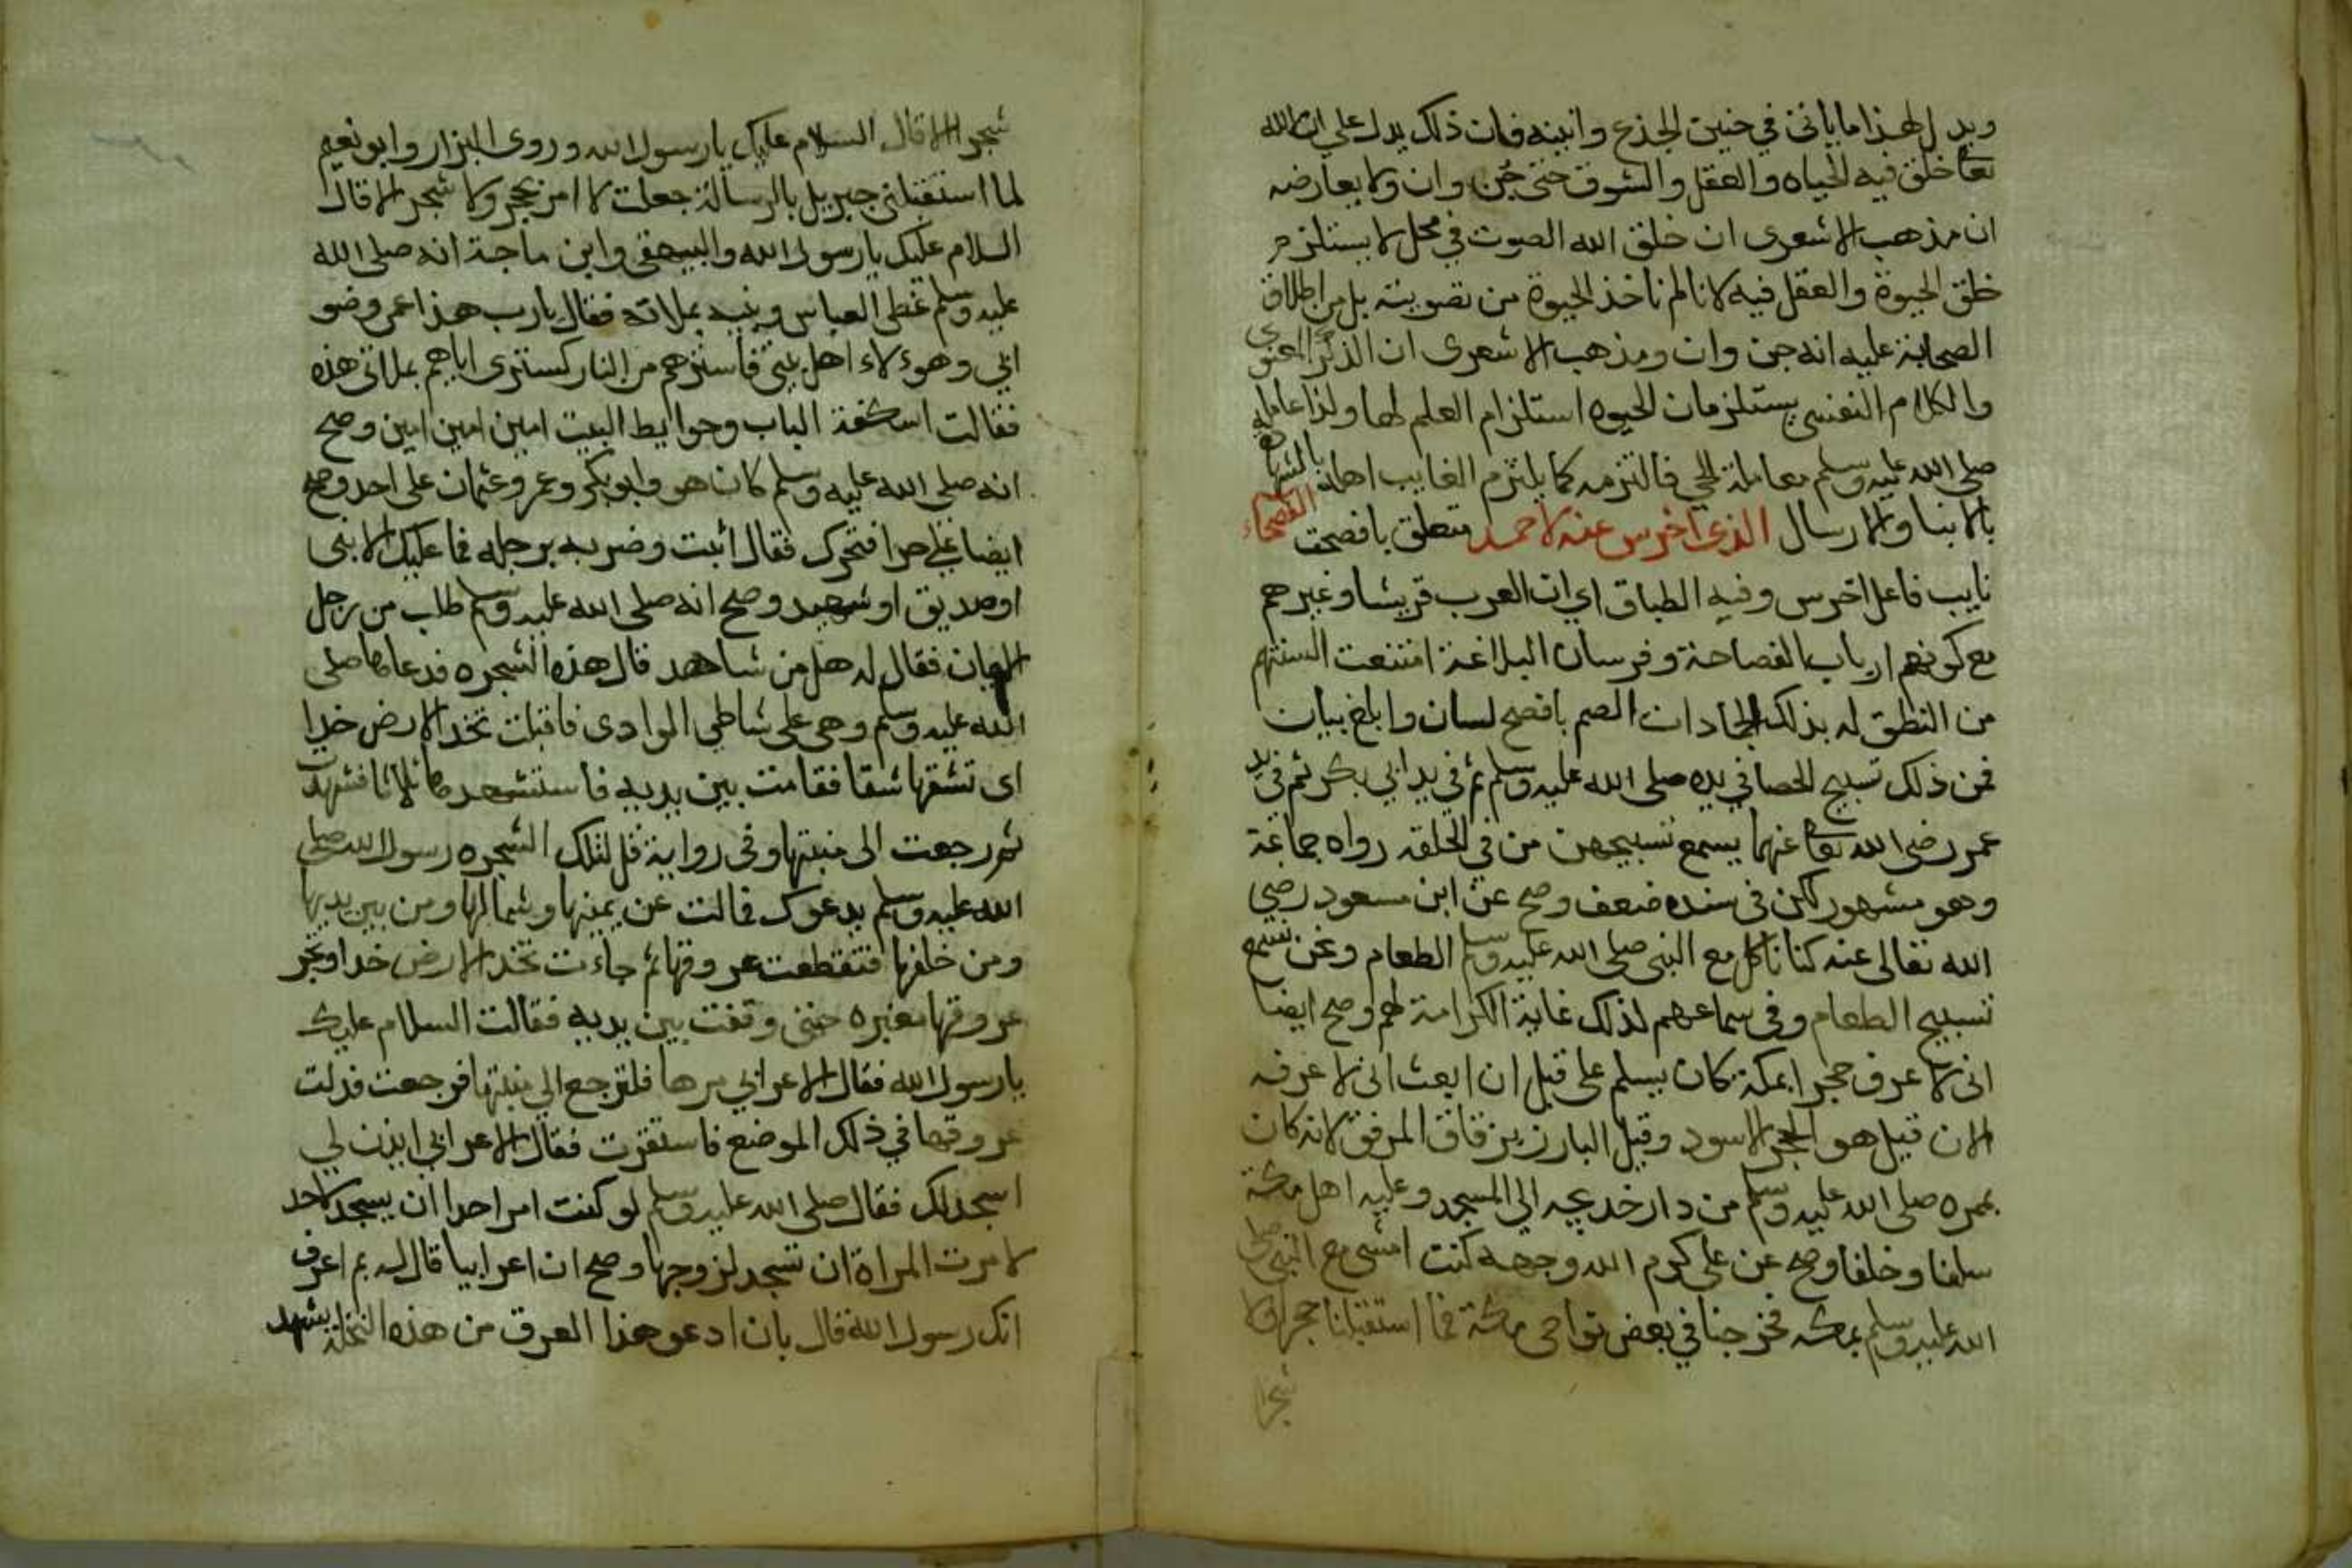 ويدل لهذا ما ياتى في حنين الجذع وانينه فان ذلك يدل على ان الله
تعا خلق فيه الحياه والعقل والشوق حتى حن وان ولا يعارضه
ان مذهب الاشعرى ان خلق الله الصوت في محل لا يستلزم
خلق الحيوة والعقل فيه لانا لم ناخذ الحيوة من تصويته بل من اطلاق
الصحابة عليه انه حن وان ومذهب الاشعرى ان الذكر المعنوى
والكلام النفسى يستلزمان الحيوه استلزام العلم لها ولذا عامله
صلى الله عليه وسلم معاملة الحي فالتزمه كما يلتزم الغايب اهله بالشهاده
بالانبا والارسال الذى اخرس عنه لاحمد متعلق بافصحت الفصحاء
نايب فاعل اخرس وفيه الطباق اي ان العرب قريشا وغيرهم
مع كونهم ارباب الفصاحة وفرسان البلاغة امتنعت السنتهم
من النطق له بذلك الجمادات الصم بافصح لسان وابلغ بيان
فمن ذلك تسبيح الحصا في يده صلى الله عليه وسلم ثم في يد ابي بكر ثم في يد
عمر رضى الله تعا عنهما يسمع تسبيحهن من في الحلقه رواه جماعة
وهو مشهور لكن فى سنده ضعف وصح عن ابن مسعود رضي
الله تعالى عنه كنا ناكل مع النبى صلى الله عليه وسلم الطعام ونحن نسمع
تسبيح الطعام وفى سماعهم لذلك غاية الكرامة لهم وصح ايضا
انى لا عرف حجرا بمكة كان يسلم على قبل ان ابعث انى لا عرفه
الان قيل هو الحجر الاسود وقيل البارز بزقاق المرفق لانه كان
بممره صلى الله عليه وسلم من دار خديجه الي المسجد وعليه اهل مكة
سلفا وخلفا وصح عن على كرم الله وجهه كنت امشى مع النبى صلى
الله عليه وسلم بمكه فخرجنا في بعض نواحى مكة فما استقبلنا حجر ولا
شجر
شجر الا قال السلام عليك يا رسول الله وروى البزار وابو نعيم
لما استقبلنى جبريل بالرسالة جعلت لا امر بحجر ولا شجر الا قال
السلام عليك يا رسول الله والبيهقى وابن ماجة انه صلى الله
عليه وسلم غطى العباس وبنيه بملاته فقال يا رب هذا عمى وصنو
ابي وهوءلاء اهل بيتى فاسترهم من النار كسترى اياهم بملاتى هذه
فقالت اسكفة الباب وحوايط البيت امين امين امين وصح
انه صلى الله عليه وسلم كان هو وابو بكر وعمر وعثمان على احد وصح
ايضا على حرا فتحرك فقال اثبت وضربه برجله فما عليك الا نبى
او صديق او شهيد وصح انه صلى الله عليه وسلم طلب من رجل
الايمان فقال له هل من شاهد قال هذه الشجره فدعاها صلى
الله عليه وسلم وهى على شاطى الوادى فاقبلت تخد الارض خدا
اى تشقها شقا فقامت بين يديه فاستشهدها ثلاثا فشهدت
ثم رجعت الى منبتها وفى رواية قل لتلك الشجره رسول الله صلى
الله عليه وسلم يدعوك فمالت عن يمينها وشمالها ومن بين يديها
ومن خلفها فتقطعت عروقها ثم جاءت تخد الارض خدا وتجر
عروقها مغبره حتى وقفت بين يديه فقالت السلام عليك
يا رسول الله فقال الاعرابي مرها فلترجع الي منبتها فرجعت فدلت
عروقها في ذلك الموضع فاستقرت فقال الاعرابي ايذن لي
اسجد لك فقال صلى الله عليه وسلم لو كنت امر احدا ان يسجد لاحد
لامرت المراة ان تسجد لزوجها وصح ان اعرابيا قال له بم اعرف
انك رسول الله قال بان ادعو هذا العرق من هذه النخلة يشهد